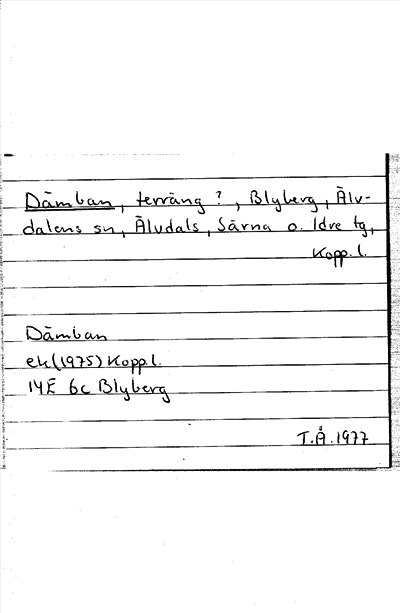 Dämban, terräng ?, Blyberg, Älv-
dalens sn, Älvdals, Särna o. Idre tg,
Kopp. l.
Dämban
ek (1975) Kopp.l.
14E 6c Blyberg
T.Å.1977